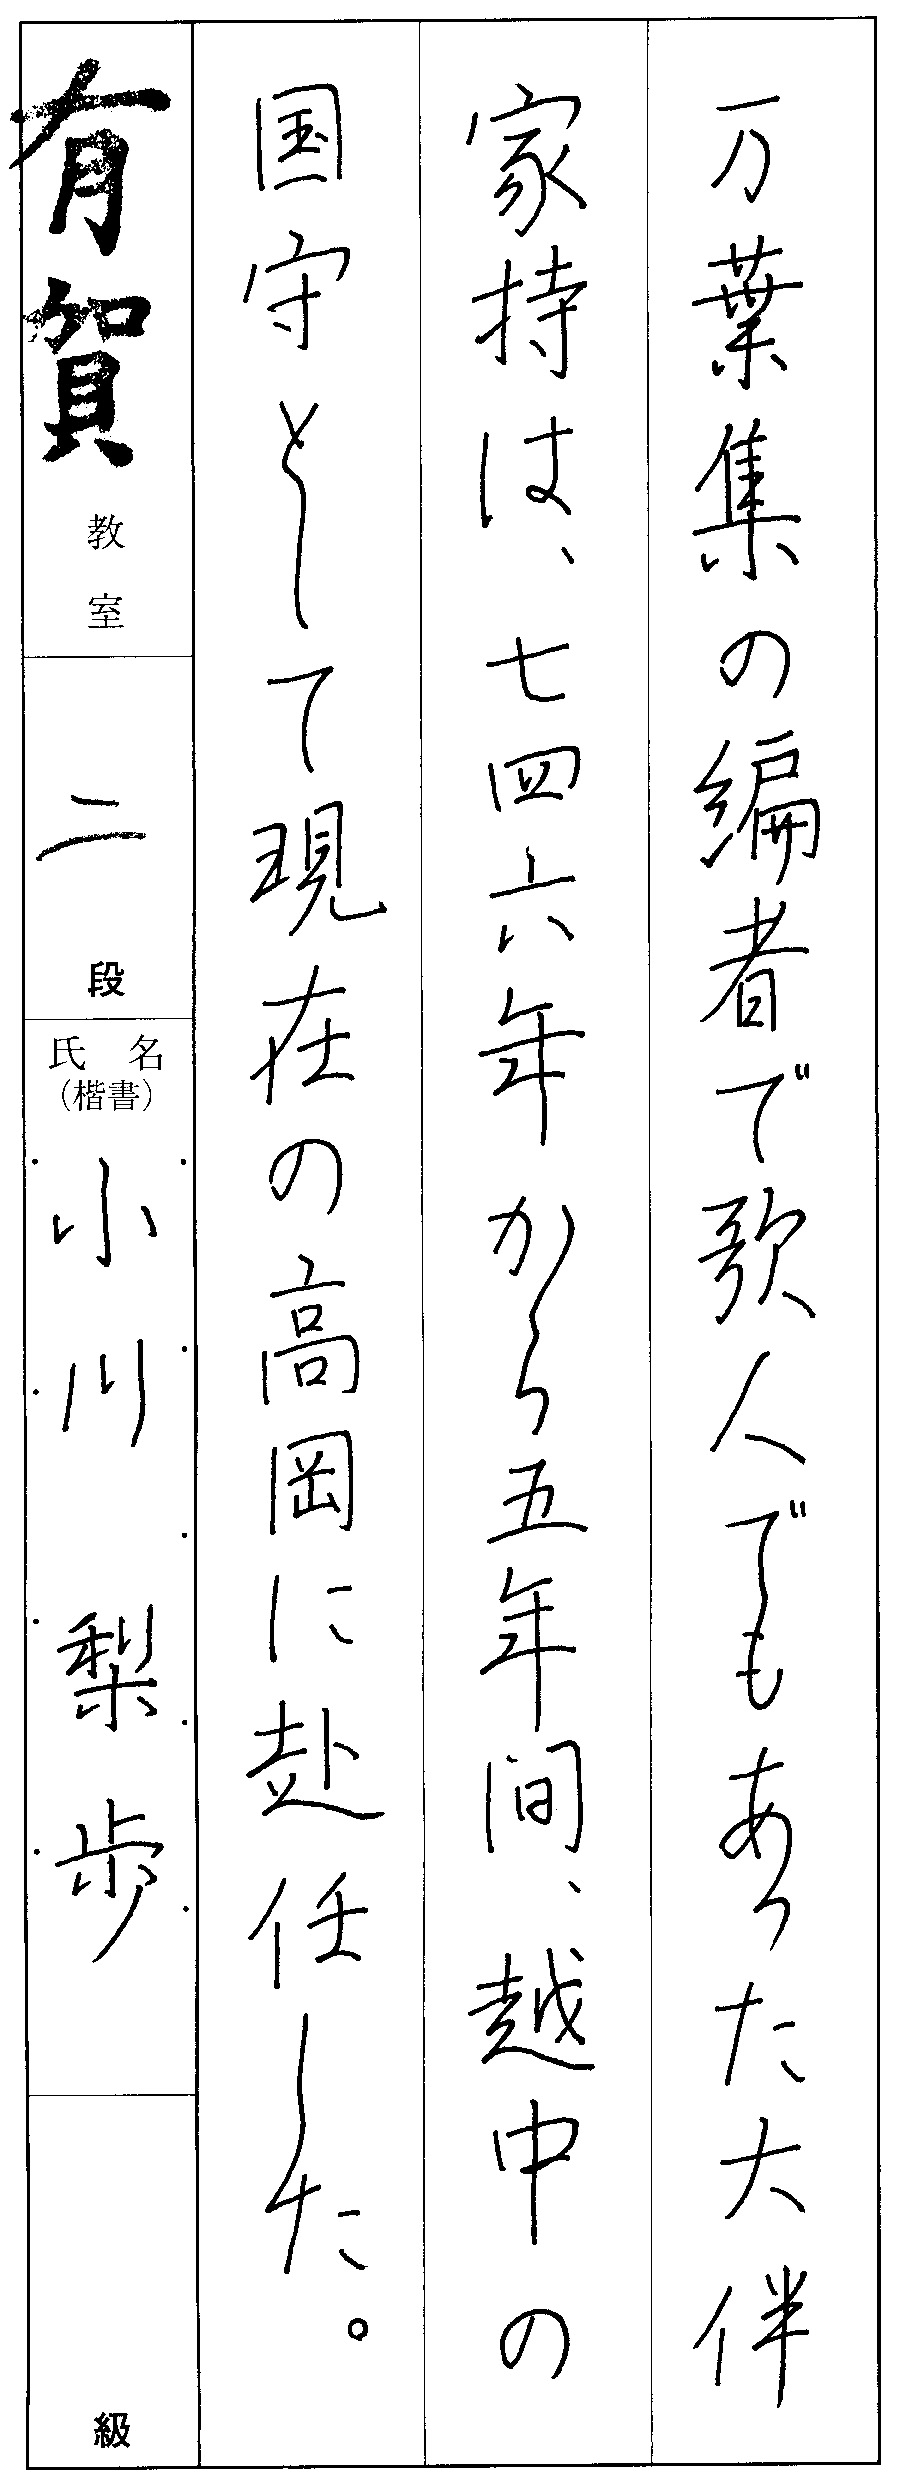 万葉集の編者で歌人でもあった大伴
家持は、七四六年から五年間、越中の
国守として現在の高岡に赴任した。
有賀教室
二段
氏名
(楷書)
小川梨歩
級